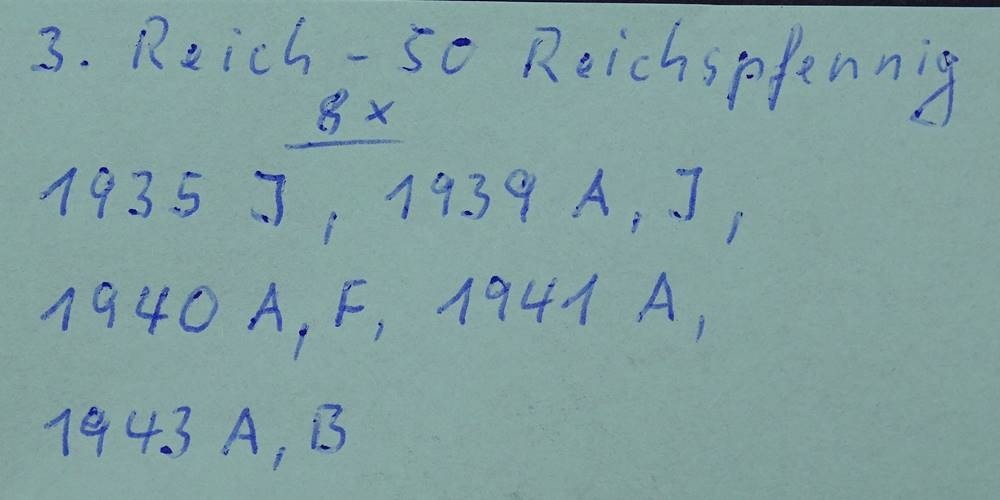 3. Reich - 50 Reichspfennig
8 x
1935 J, 1939 A, J,
1940 A, F, 1941 A,
1943 A, B